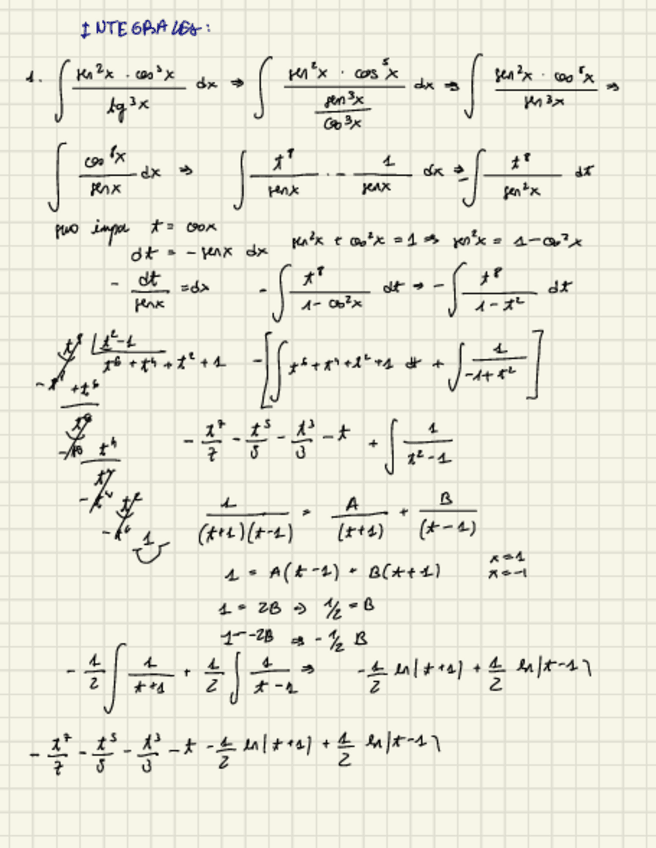 INTEGRALES:
1. ∫ sen²x · cos⁵x / tg³x dx ⇒ ∫ sen²x · cos⁵x / (sen³x / cos³x) dx ⇒ ∫ sen²x · cos⁸x / sen³x ⇒
∫ cos⁸x / senx dx ⇒ ∫ t⁸ / senx · - 1 / senx dx ⇒ - ∫ t⁸ / sen²x dt
impar t = cosx
dt = - senx dx sen²x + cos²x = 1 ⇒ sen²x = 1 - cos²x
- dt / senx = dx - ∫ t⁸ / 1 - cos²x dt ⇒ - ∫ t⁸ / 1 - t² dt
t⁸ | t² - 1
t⁶ + t⁴ + t² + 1 - [ ∫ t⁶ + t⁴ + t² + 1 dt + ∫ 1 / -1 + t² ]
- t⁷/7 - t⁵/5 - t³/3 - t + ∫ 1 / t² - 1
1 / (t+1)(t-1) = A / (t+1) + B / (t-1)
1 = A(t-1) + B(t+1) x=1
x=-1
1 = 2B ⇒ 1/2 = B
1 = -2B ⇒ - 1/2 B
- 1/2 ∫ 1 / t+1 + 1/2 ∫ 1 / t-1 ⇒ - 1/2 ln|t+1| + 1/2 ln|t-1|
- t⁷/7 - t⁵/5 - t³/3 - t - 1/2 ln|t+1| + 1/2 ln|t-1|